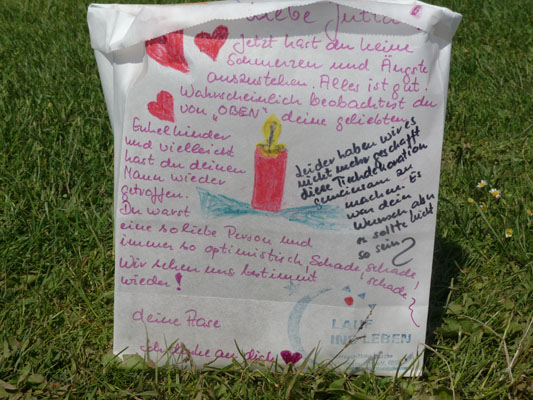 Liebe Jutta!
Jetzt hast du keine
Schmerzen und Ängste
auszustehen. Alles ist gut!
Wahrscheinlich beobachtest du
von „OBEN" deine geliebten
Enkelkinder
und vielleicht
hast du deinen
Mann wieder
getroffen.
Du warst
eine so liebe Person und
immer so optimistisch. Schade, schade,
schade!
Wir sehen uns bestimmt
wieder!
Leider haben wir es
nicht mehr geschafft
diese Tischdekoration
gemeinsam zu
machen. Es
war dein
Wunsch aber
es sollte nicht
so sein
deine
Ich denke an dich
LAUF
INS LEBEN